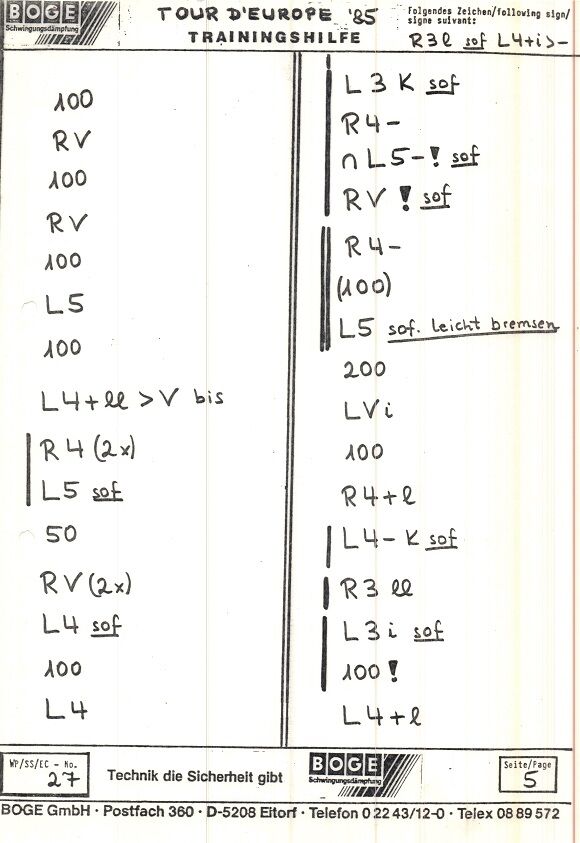 BOGE
Schwingungsdämpfung
TOUR D'EUROPE '85
TRAININGSHILFE
Folgendes Zeichen/following sign/
signe suivant:
R3l sof L4+i>-
100
RV
100
RV
100
L5
100
L4+ll >V bis
R4(2x)
L5 sof
50
RV(2x)
L4 sof
100
L4
L3 K sof
R4-
∩ L5-! sof
RV ! sof
R4-
(100)
L5 sof. leicht bremsen
200
LVi
100
R4+l
L4- K sof
R3 ll
L3 i sof
100 !
L4+l
WP/SS/EC - No.
27
Technik die Sicherheit gibt
BOGE
Schwingungsdämpfung
Seite/Page
5
BOGE GmbH · Postfach 360 · D-5208 Eitorf · Telefon 0 22 43/12-0 · Telex 08 89 572